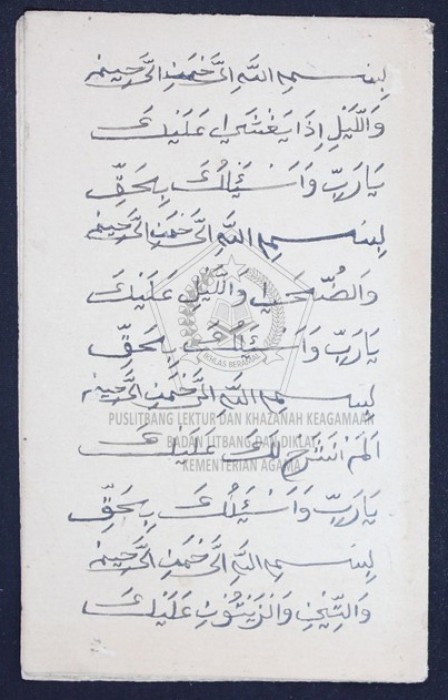 بِسْمِ اللَّهِ الرَّحْمَنِ الرَّحِيمِ
وَاللَّيْلِ إِذَا يَغْشَى عَلَيْكَ
يَارَبِّ وَاَسْئَلُكَ بِحَقِّ
بِسْمِ اللَّهِ الرَّحْمَنِ الرَّحِيمِ
وَالضُّحَى وَاللَّيْلِ عَلَيْكَ
يَارَبِّ وَاَسْئَلُكَ بِحَقِّ
بِسْمِ اللَّهِ الرَّحْمَنِ الرَّحِيمِ
اَلَمْ نَشْرَحْ لَكَ عَلَيْكَ
يَارَبِّ وَاَسْئَلُكَ بِحَقِّ
بِسْمِ اللَّهِ الرَّحْمَنِ الرَّحِيمِ
وَالتِّيْنِ وَالزَّيْتُوْنِ عَلَيْكَ
IKHLAS BERAMAL
PUSLITBANG LEKTUR DAN KHAZANAH KEAGAMAAN
BADAN LITBANG DAN DIKLAT
KEMENTERIAN AGAMA